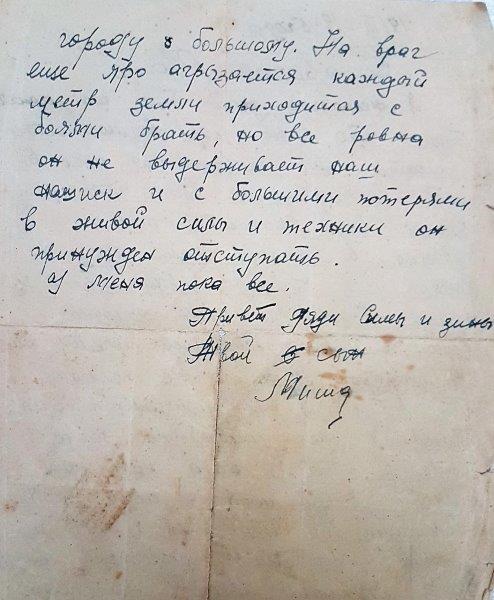 городу б большому. На враг
еще яро агрызается каждый
метр земли приходится с
боями брать, но все ровна
он не выдерживает наш
натиск и с большими потерями
в живой силы и техники он
принужден отступать.
У меня пока все.
Привет дяди Симы и зины
Твой сын
Миша